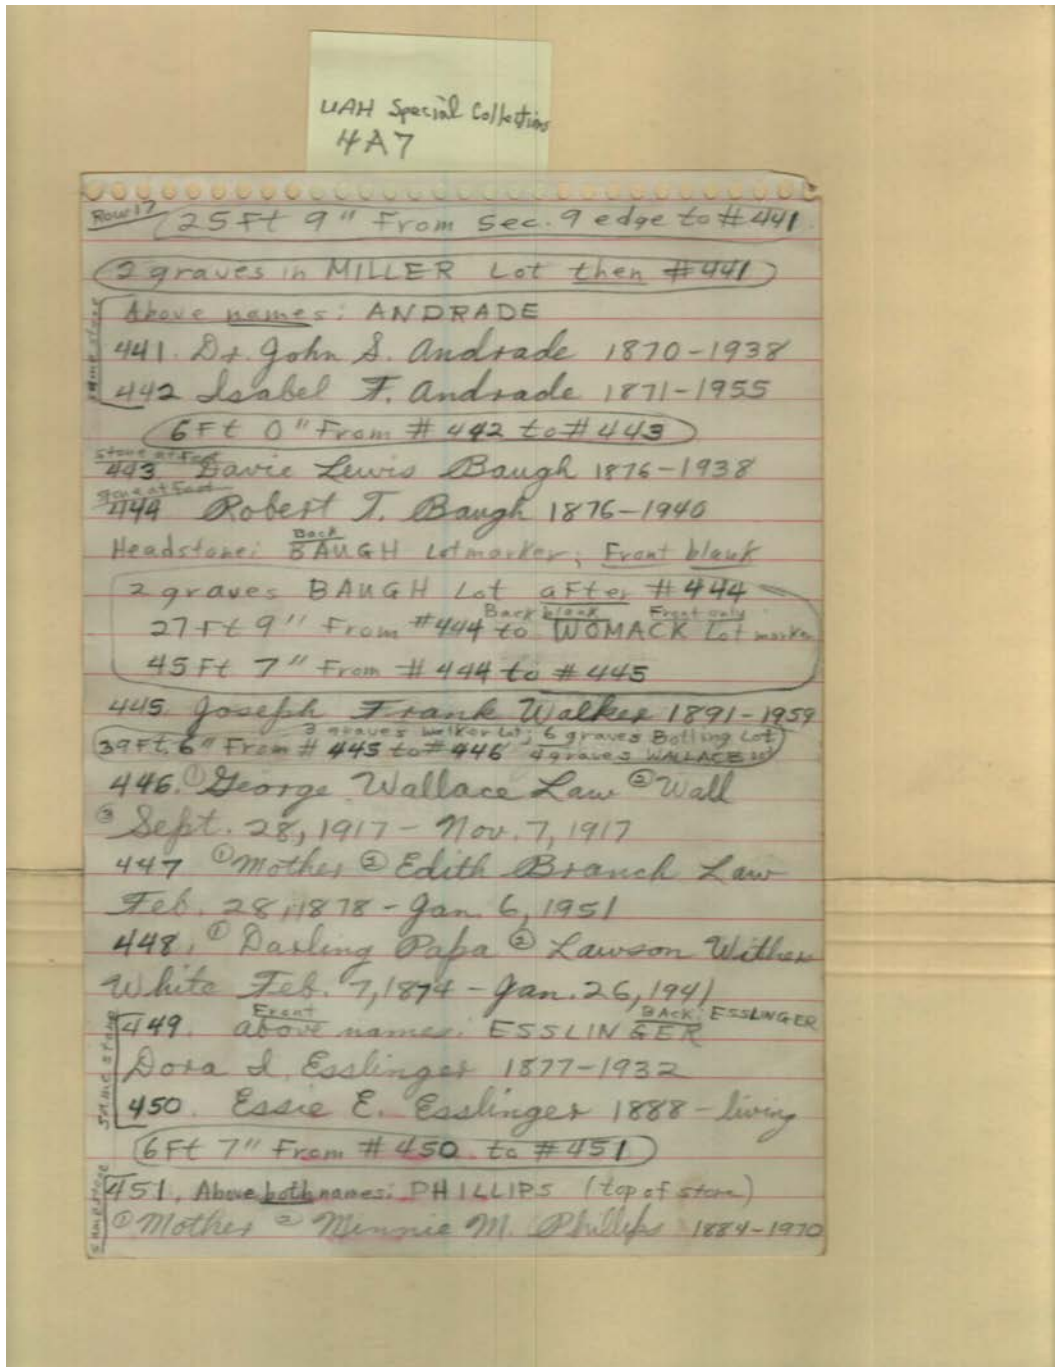 UAH Special Collections
4A7
Row 17
25 Ft 9" From Sec. 9 edge to #441
2 graves in MILLER Lot then #441
same stone
Above names: ANDRADE
441. Dr. John S. Andrade 1870-1938
442 Isabel F. Andrade 1871-1955
6 Ft 0" From #442 to #443
stone at Foot
443 Davie Lewis Baugh 1876-1938
stone at Foot
444 Robert T. Baugh 1876-1940
Back
Headstone: BAUGH Lot marker; Front blank
2 graves BAUGH Lot after #444
Back blank Front only
27 Ft 9" From #444 to WOMACK Lot marker
45 Ft 7" From #444 to #445
445. Joseph Frank Walker 1891-1959
3 graves Walker Lot; 6 graves Bolling Lot
39 Ft. 6" From #445 to #446 4 graves WALLACE
446. ① George Wallace Law ② Wall
③ Sept. 28, 1917 - Nov. 7, 1917
447 ① Mother ② Edith Branch Law
Feb. 28, 1878 - Jan. 6, 1951
448. ① Darling Papa ② Lawson Withers
White Feb. 7, 1874 - Jan. 26, 1941
same stone
Front Back: ESSLINGER
449. above names: ESSLINGER
Dora I. Esslinger 1877-1932
450. Essie E. Esslinger 1888 - living
6 Ft 7" From #450 to #451
same stone
451. Above both names: PHILLIPS (top of stone)
① Mother ② Minnie M. Phillips 1884-1970